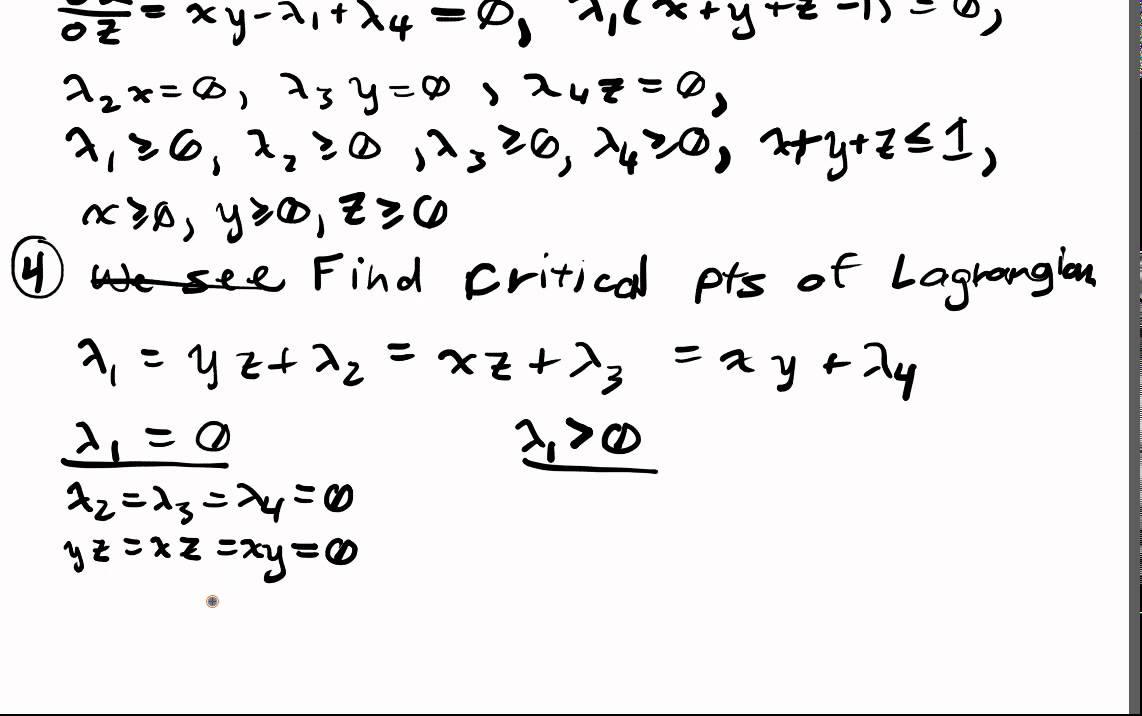 ∂z = xy - λ₁ + λ₄ = 0, λ₁(x + y + z - 1) = 0,
λ₂x = 0, λ₃y = 0, λ₄z = 0,
λ₁ ≥ 0, λ₂ ≥ 0, λ₃ ≥ 0, λ₄ ≥ 0, x+y+z ≤ 1,
x ≥ 0, y ≥ 0, z ≥ 0
④ We see Find critical pts of Lagrangian
λ₁ = yz + λ₂ = xz + λ₃ = xy + λ₄
λ₁ = 0 λ₁ > 0
λ₂ = λ₃ = λ₄ = 0
yz = xz = xy = 0